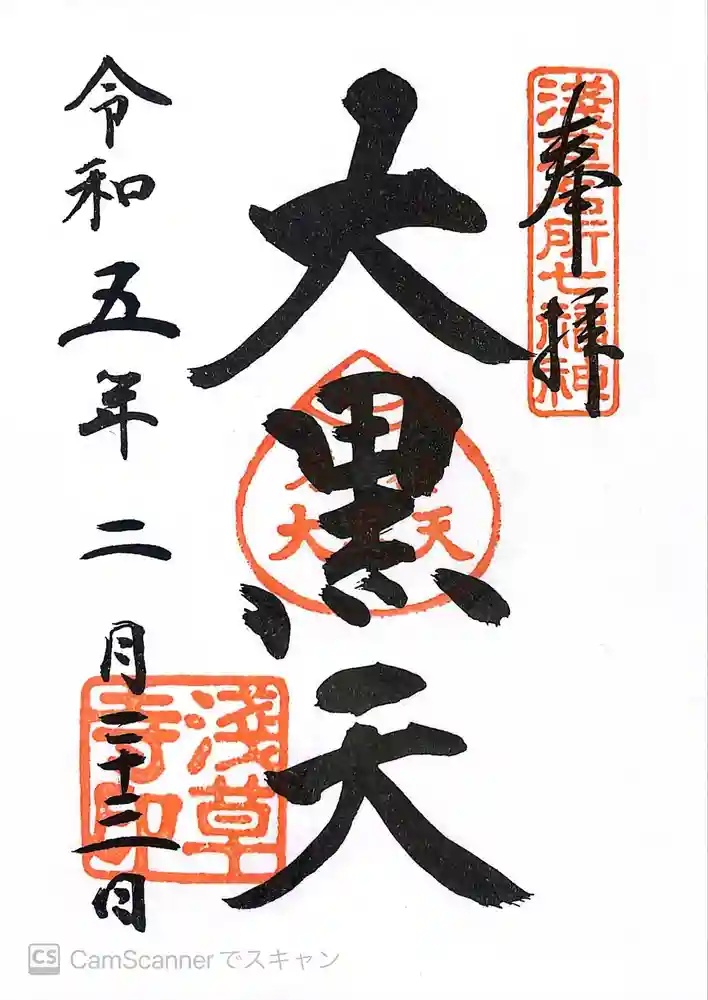 淺草名所七福神
奉拝
大黒天
令和五年二月二十三日
淺草寺印
CS CamScannerでスキャン